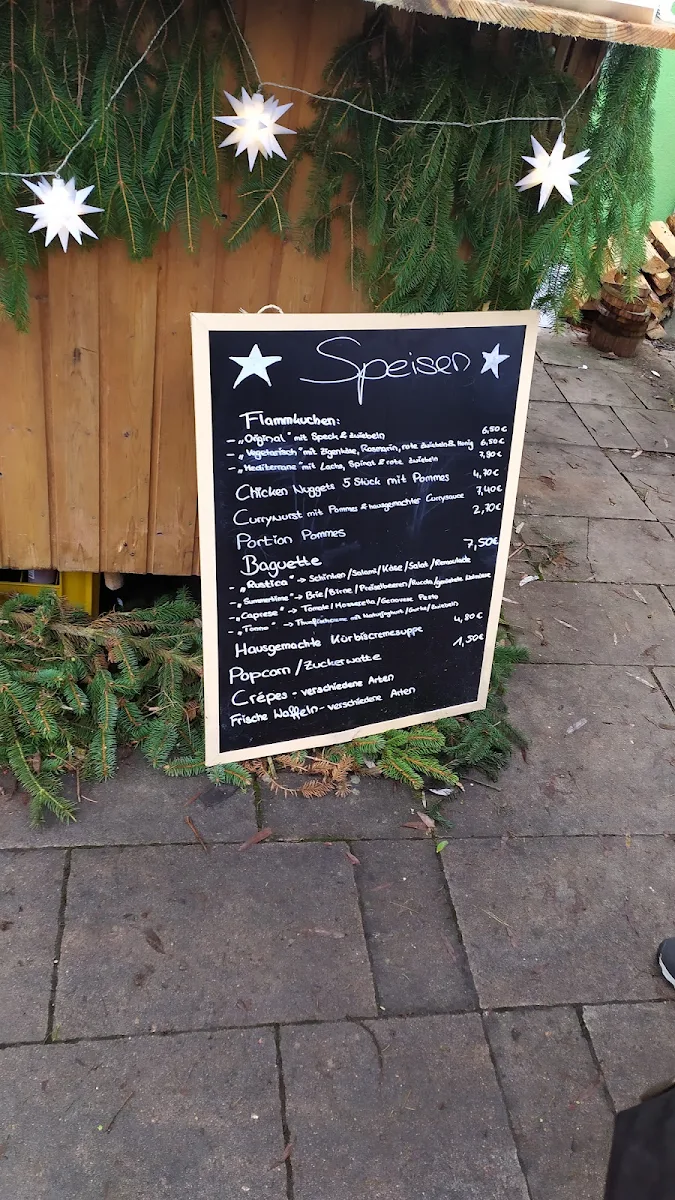 Speisen
Flammkuchen:
- „Original" mit Speck & Zwiebeln 6,50€
- „Vegetarisch" mit Ziegenkäse, Rosmarin, rote Zwiebeln & Honig 6,50€
- „Mediterrane" mit Lachs, Spinat & rote Zwiebeln 7,80€
Chicken Nuggets 5 Stück mit Pommes 4,70€
Currywurst mit Pommes & hausgemachter Currysauce 7,40€
Portion Pommes 2,70€
Baguette 7,50€
- „Rustica" → Schinken/Salami/Käse/Salat/Remoulade
- „Summertime" → Brie/Birne/Preiselbeeren/Rucola/
- „Caprese" → Tomate/Mozzarella/Genovese Pesto
- „Tonno" → mit Naturjoghurt/Gurke/Zwiebeln
Hausgemachte Kürbiscremesuppe 4,80€
Popcorn/Zuckerwatte 1,50€
Crêpes - verschiedene Arten
Frische Waffeln - verschiedene Arten